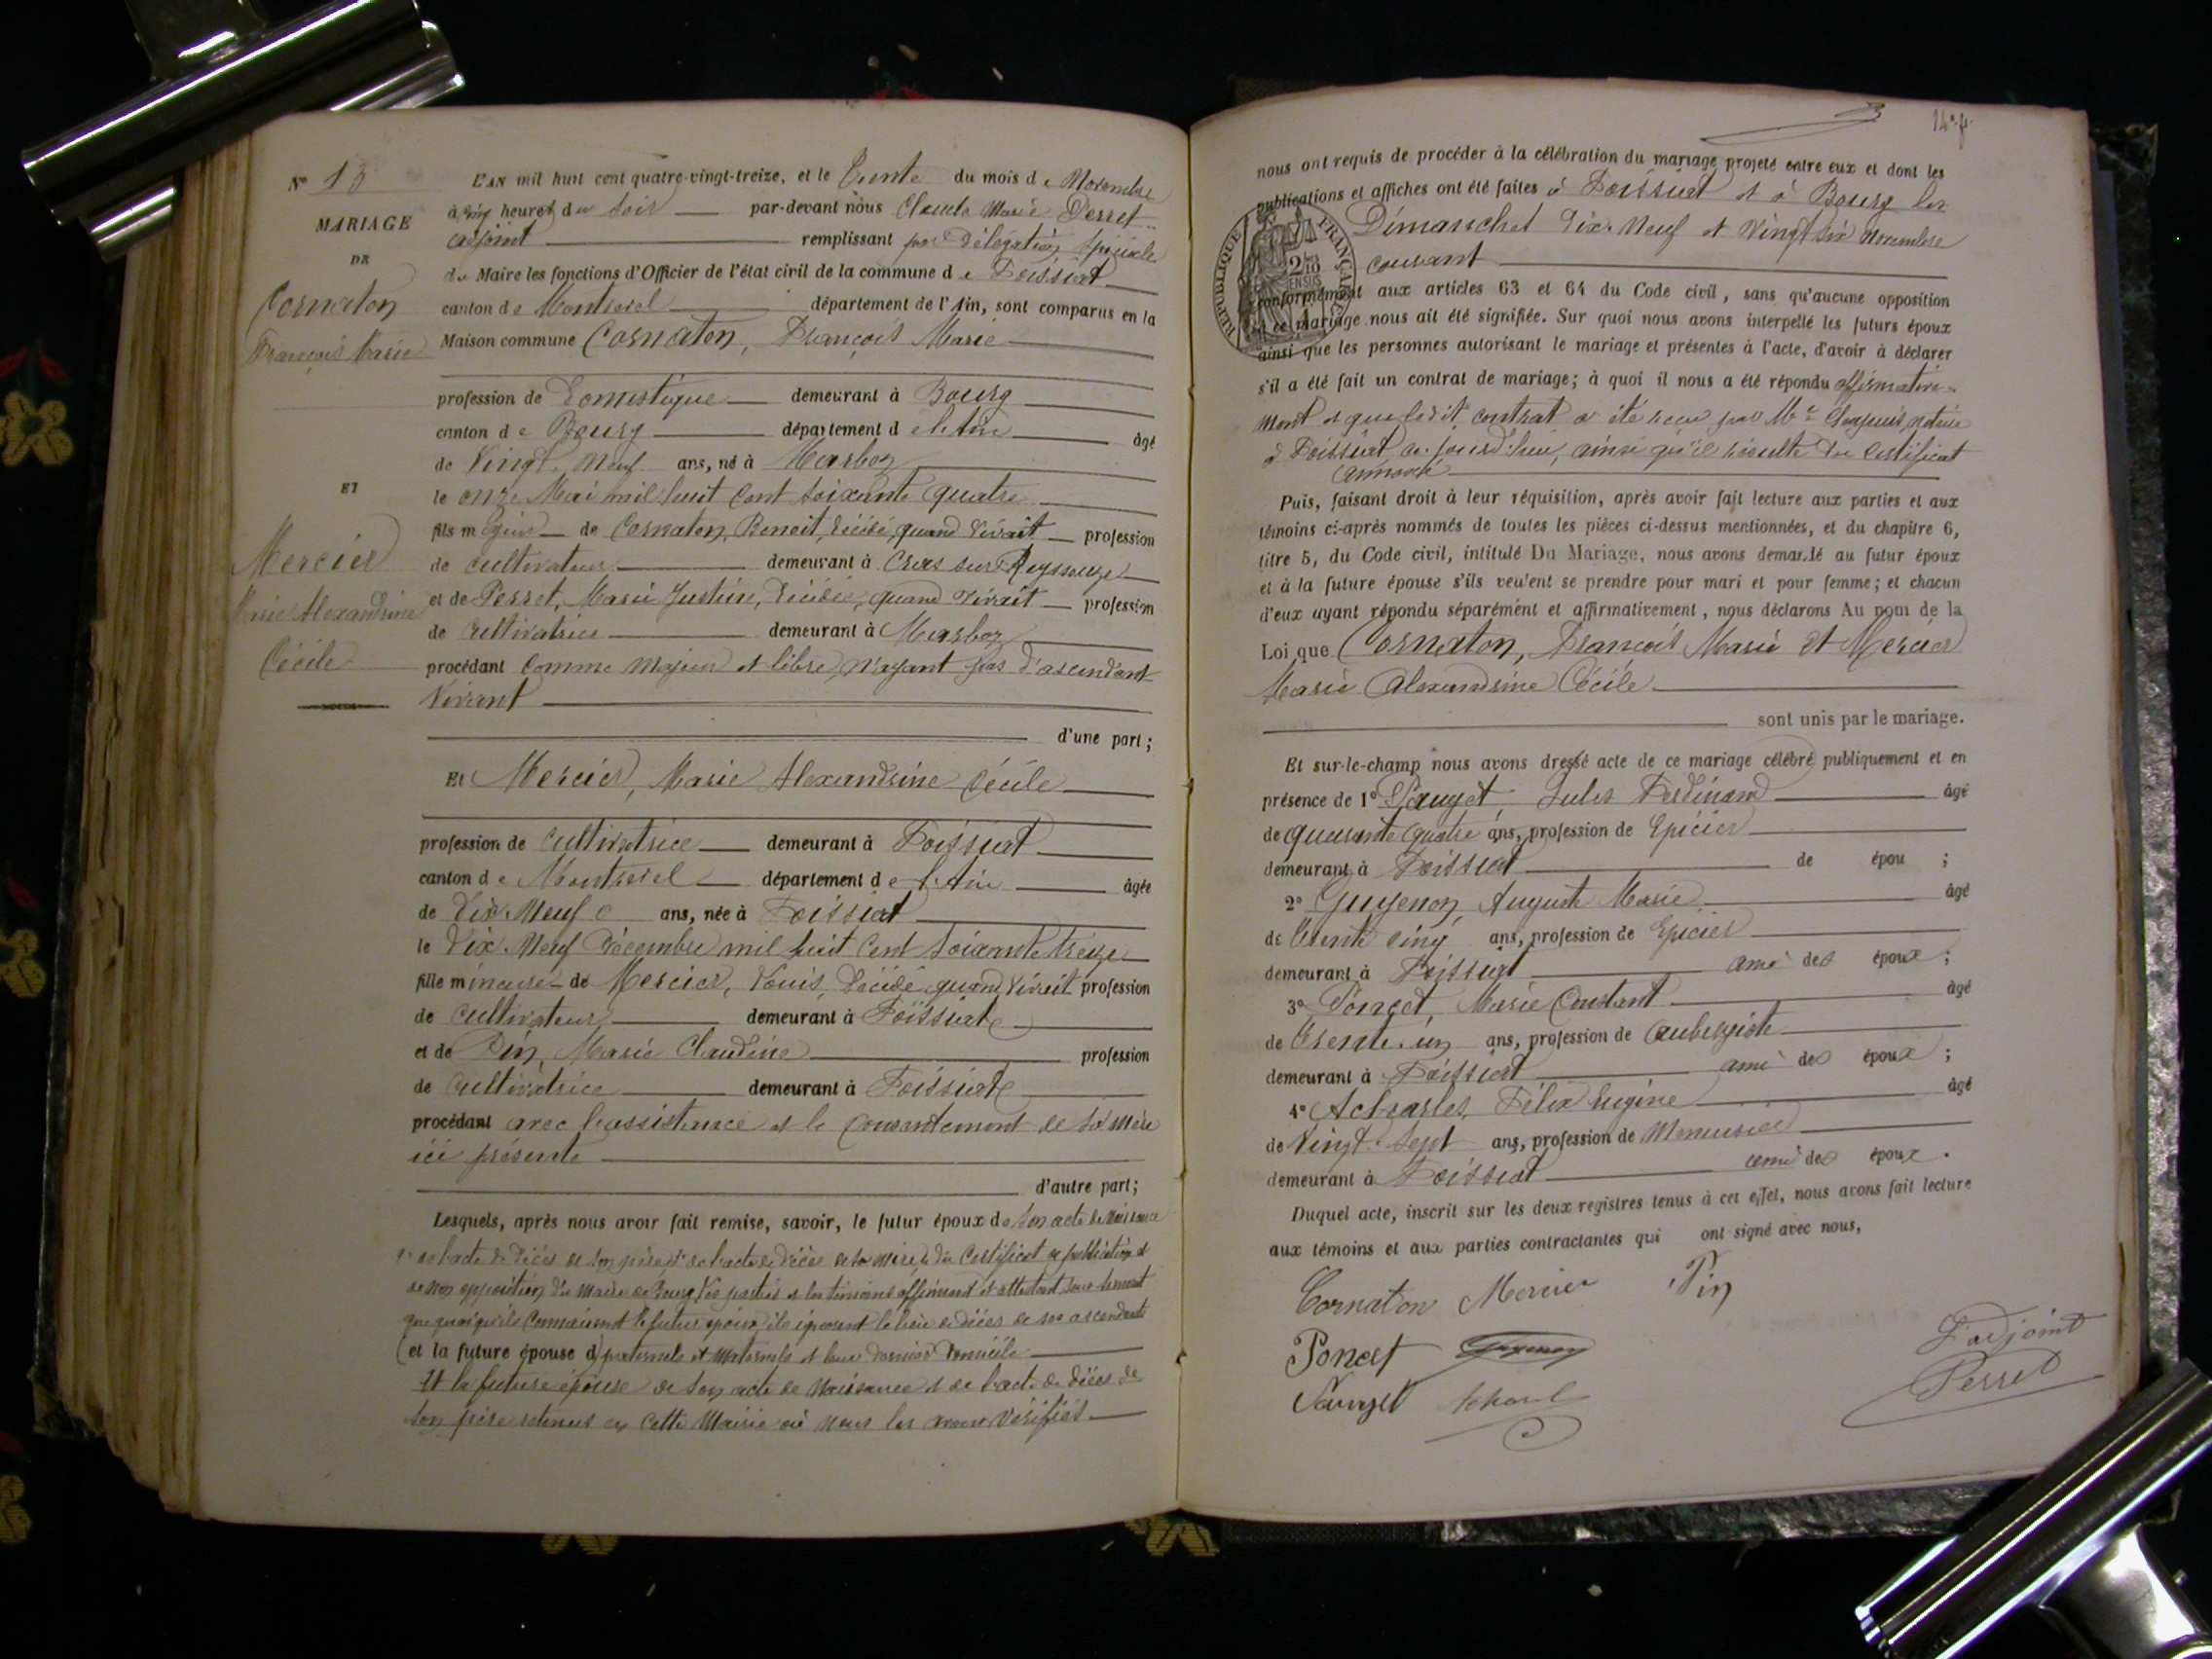 N° 13
MARIAGE
DE
Cornaton
François Marie
ET
Mercier
Marie Alexandrine
Cécile
L'AN mil huit cent quatre-vingt-treize, et le Trente du mois de Novembre
à cinq heures du soir par-devant nous Claude Marie Perret
adjoint remplissant par délégation spéciale
du Maire les fonctions d'Officier de l'état civil de la commune de Foissiat
canton de Montrevel département de l'Ain, sont comparus en la
Maison commune Cornaton, François Marie
profession de Domestique demeurant à Bourg
canton de Bourg département de l'Ain âgé
de Vingt-Neuf ans, né à Marboz
le onze Mai mil huit cent soixante quatre
fils majeur de Cornaton, Benoit, décédé, quand vivait profession
de cultivateur demeurant à Cras sur Reyssouze
et de Perret, Marie Justine, décédée, quand vivait profession
de cultivatrice demeurant à Marboz
procédant comme majeur et libre, n'ayant pas d'ascendant
vivant
d'une part;
Et Mercier, Marie Alexandrine Cécile
profession de cultivatrice demeurant à Foissiat
canton de Montrevel département de l'Ain âgée
de Dix-Neuf ans, née à Foissiat
le Dix-Neuf Décembre mil huit cent soixante treize
fille mineure de Mercier, Louis, décédé quand vivait profession
de cultivateur demeurant à Foissiat
et de Pin, Marie Claudine profession
de cultivatrice demeurant à Foissiat
procédant avec l'assistance et le consentement de sa mère
ici présente
d'autre part;
Lesquels, après nous avoir fait remise, savoir, le futur époux de son acte de naissance
de l'acte de décès de son père et de l'acte de décès de sa mère et du certificat de publication et
de non opposition du maire de Bourg les parties et les témoins affirment et attestant sous serment
que quoiqu'ils connaissent le futur époux ils ignorent le lieu de décès de ses ascendants
(et la future épouse d) paternels et maternels et leur dernier domicile
Et la future épouse de son acte de naissance et de l'acte de décès de
son père retenus en cette Mairie où nous les avons vérifiés
nous ont requis de procéder à la célébration du mariage projeté entre eux et dont les
publications et affiches ont été faites à Foissiat et à Bourg les
Dimanches Dix-Neuf et Vingt six novembre
courant
RÉPUBLIQUE FRANÇAISE
conformément aux articles 63 et 64 du Code civil, sans qu'aucune opposition
à ce mariage nous ait été signifiée. Sur quoi nous avons interpellé les futurs époux
ainsi que les personnes autorisant le mariage et présentes à l'acte, d'avoir à déclarer
s'il a été fait un contrat de mariage; à quoi il nous a été répondu affirmative-
ment et que ledit contrat a été reçu par Me notaire
à Foissiat aujourd'hui, ainsi qu'il résulte du certificat
annexé
Puis, faisant droit à leur réquisition, après avoir fait lecture aux parties et aux
témoins ci-après nommés de toutes les pièces ci-dessus mentionnées, et du chapitre 6,
titre 5, du Code civil, intitulé Du Mariage, nous avons demandé au futur époux
et à la future épouse s'ils veulent se prendre pour mari et pour femme; et chacun
d'eux ayant répondu séparément et affirmativement, nous déclarons Au nom de la
Loi que Cornaton, François Marie Et Mercier
Marie Alexandrine Cécile
sont unis par le mariage.
Et sur-le-champ nous avons dressé acte de ce mariage célébré publiquement et en
présence de 1° Pauget, Jules Ferdinand âgé
de quarante quatre ans, profession de Epicier
demeurant à Foissiat de épou ;
2° Guyenon, Auguste Marie âgé
de Trente cinq ans, profession de Epicier
demeurant à Foissiat ami des époux ;
3° Poncet, Marie Constant âgé
de Trente-un ans, profession de Aubergiste
demeurant à Foissiat ami des époux ;
4° Félix Eugène âgé
de Vingt-Sept ans, profession de Menuisier
demeurant à Foissiat ami des époux.
Duquel acte, inscrit sur les deux registres tenus à cet effet, nous avons fait lecture
aux témoins et aux parties contractantes qui ont signé avec nous,
Cornaton Mercier Pin
Poncet Guyenon L'adjoint
Pauget Perret